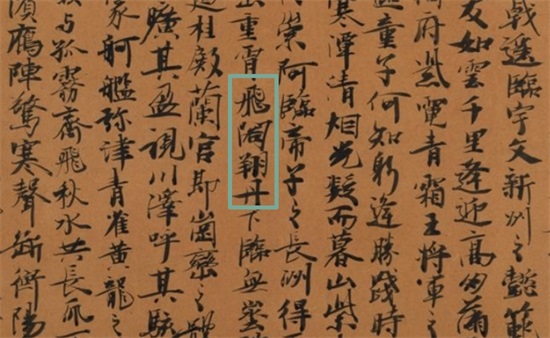 戟遥臨宇文新州之懿範
友如雲千里逢迎高朋滿
府紫電青霜王將軍之
過童子何知躬逢勝餞時
寒潭清烟光凝而暮山紫
於崇阿臨帝子之長洲得
出重霄飛閣翔丹下臨無
桂殿蘭宮即岡巒之體
曠其盈視川澤呼其駭
家舸艦弥津青雀黃龍之
與孤霧齊飛秋水共長天
濱鴈陣驚寒聲斷衡陽